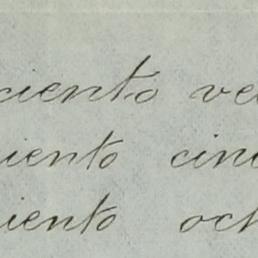 ciento ve
iento cin
iento och